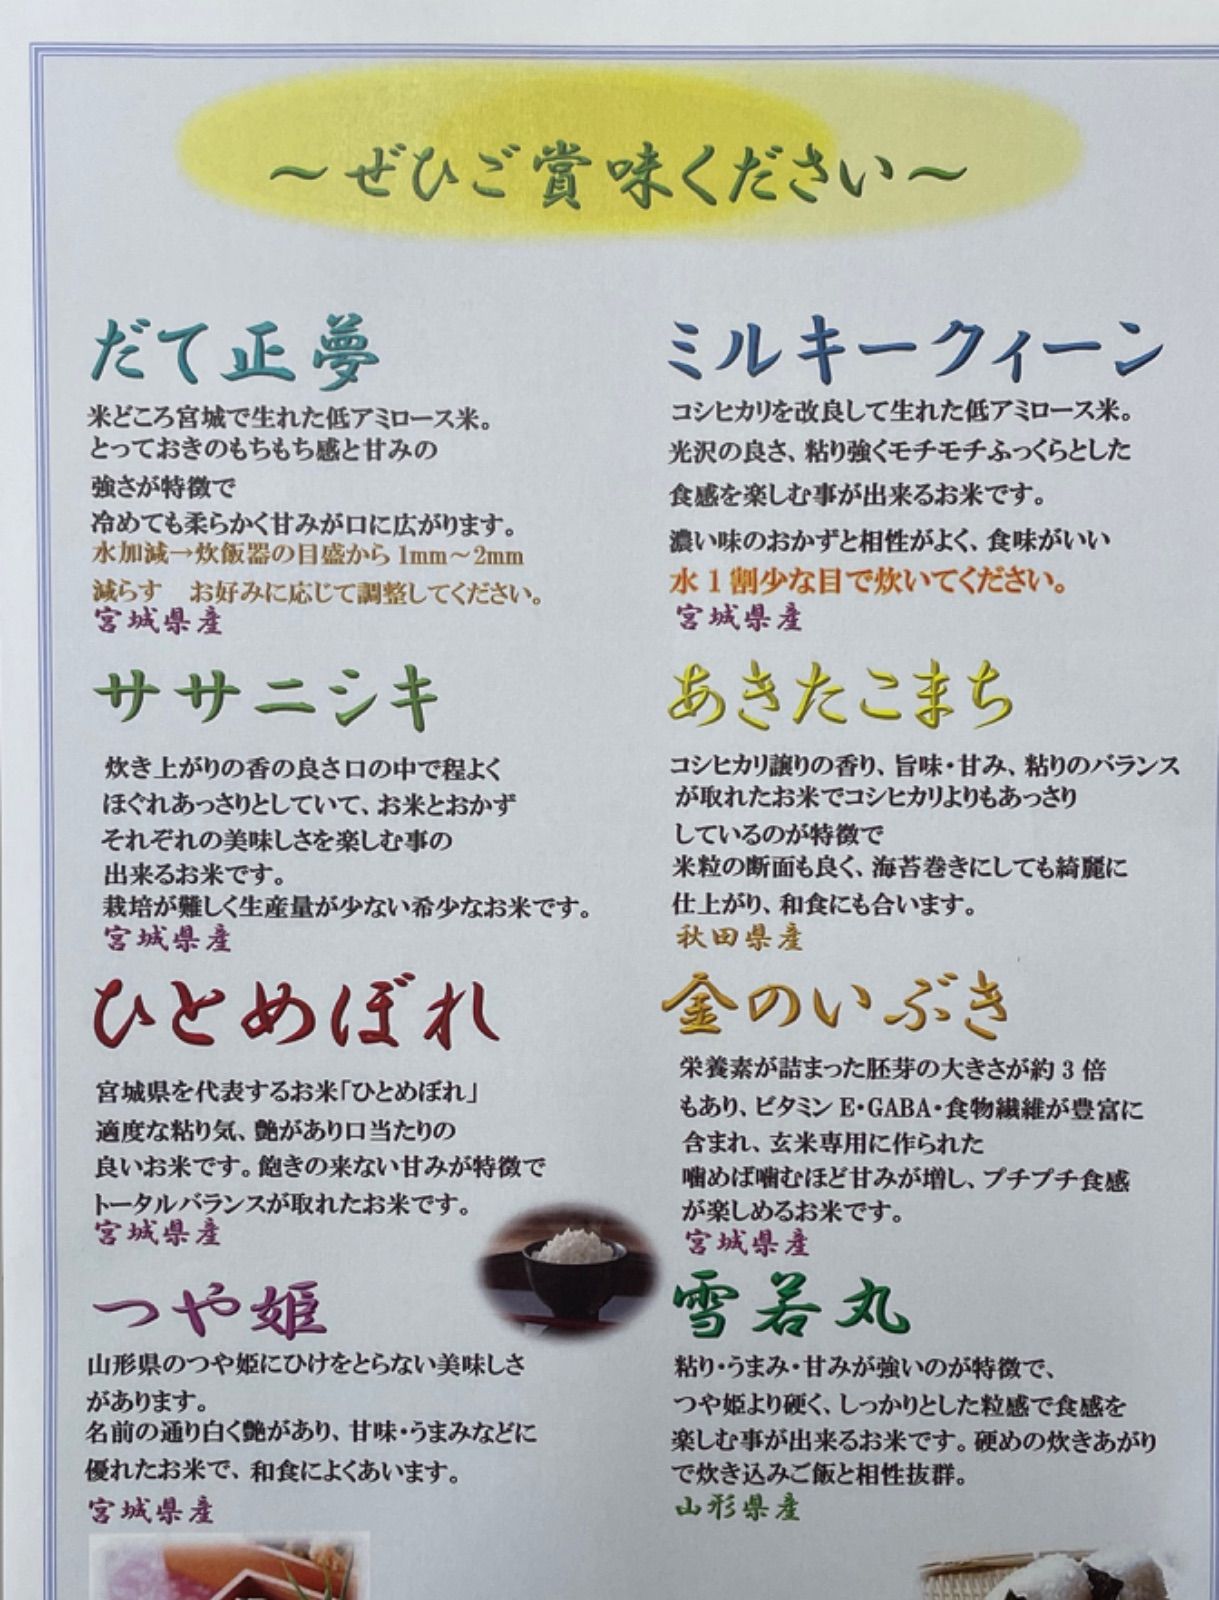 ～ぜひご賞味ください～
だて正夢
米どころ宮城で生れた低アミロース米。
とっておきのもちもち感と甘みの
強さが特徴で
冷めても柔らかく甘みが口に広がります。
水加減→炊飯器の目盛から1mm～2mm
減らす　お好みに応じて調整してください。
宮城県産
ササニシキ
炊き上がりの香の良さ口の中で程よく
ほぐれあっさりとしていて、お米とおかず
それぞれの美味しさを楽しむ事の
出来るお米です。
栽培が難しく生産量が少ない希少なお米です。
宮城県産
ひとめぼれ
宮城県を代表するお米「ひとめぼれ」
適度な粘り気、艶があり口当たりの
良いお米です。飽きの来ない甘みが特徴で
トータルバランスが取れたお米です。
宮城県産
つや姫
山形県のつや姫にひけをとらない美味しさ
があります。
名前の通り白く艶があり、甘味・うまみなどに
優れたお米で、和食によくあいます。
宮城県産
ミルキークィーン
コシヒカリを改良して生れた低アミロース米。
光沢の良さ、粘り強くモチモチふっくらとした
食感を楽しむ事が出来るお米です。
濃い味のおかずと相性がよく、食味がいい
水1割少な目で炊いてください。
宮城県産
あきたこまち
コシヒカリ譲りの香り、旨味・甘み、粘りのバランス
が取れたお米でコシヒカリよりもあっさり
しているのが特徴で
米粒の断面も良く、海苔巻きにしても綺麗に
仕上がり、和食にも合います。
秋田県産
金のいぶき
栄養素が詰まった胚芽の大きさが約3倍
もあり、ビタミンE・GABA・食物繊維が豊富に
含まれ、玄米専用に作られた
噛めば噛むほど甘みが増し、プチプチ食感
が楽しめるお米です。
宮城県産
雪若丸
粘り・うまみ・甘みが強いのが特徴で、
つや姫より硬く、しっかりとした粒感で食感を
楽しむ事が出来るお米です。硬めの炊きあがり
で炊き込みご飯と相性抜群。
山形県産